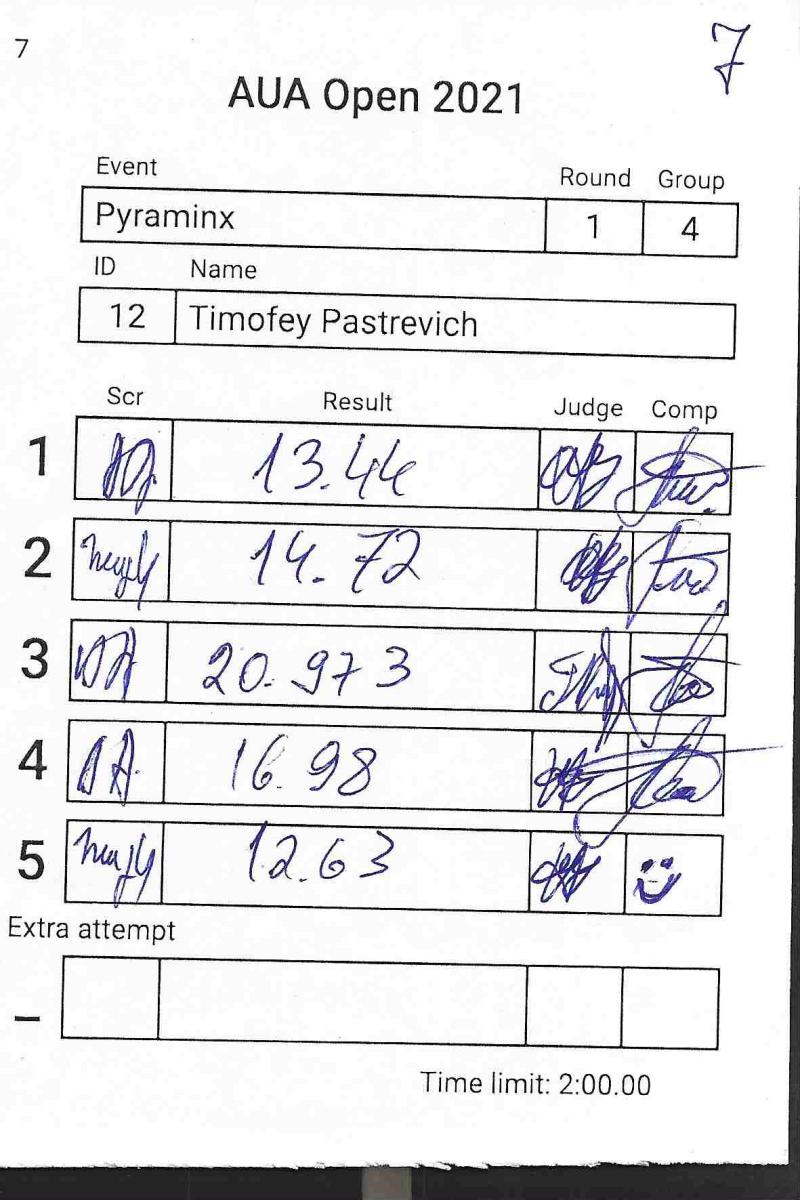 7 7
AUA Open 2021
Event Round Group
Pyraminx 1 4
ID Name
12 Timofey Pastrevich
Scr Result Judge Comp
1 13.44
2 14.72
3 20.973
4 16.98
5 12.63
Extra attempt
_
Time limit: 2:00.00